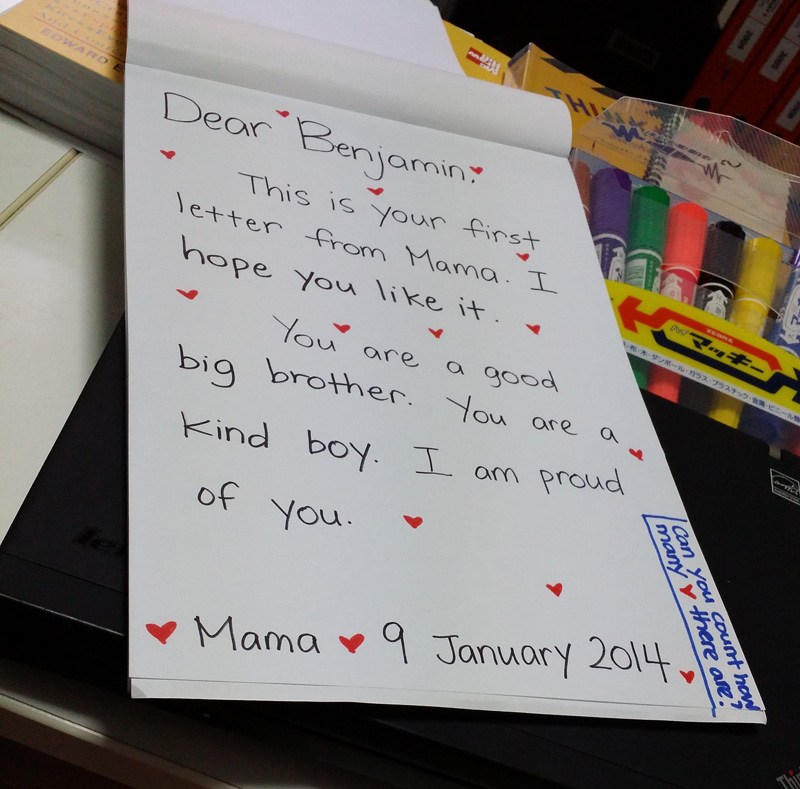 EDWARD
Dear Benjamin,
This is your first
letter from Mama. I
hope you like it.
You are a good
big brother. You are a
kind boy. I am proud
of you.
Mama 9 January 2014
can you count how
many ♥ there are?
ZEBRA
マッキー
紙・布・木・ダンボール・ガラス・プラスチック・金属・ビニール